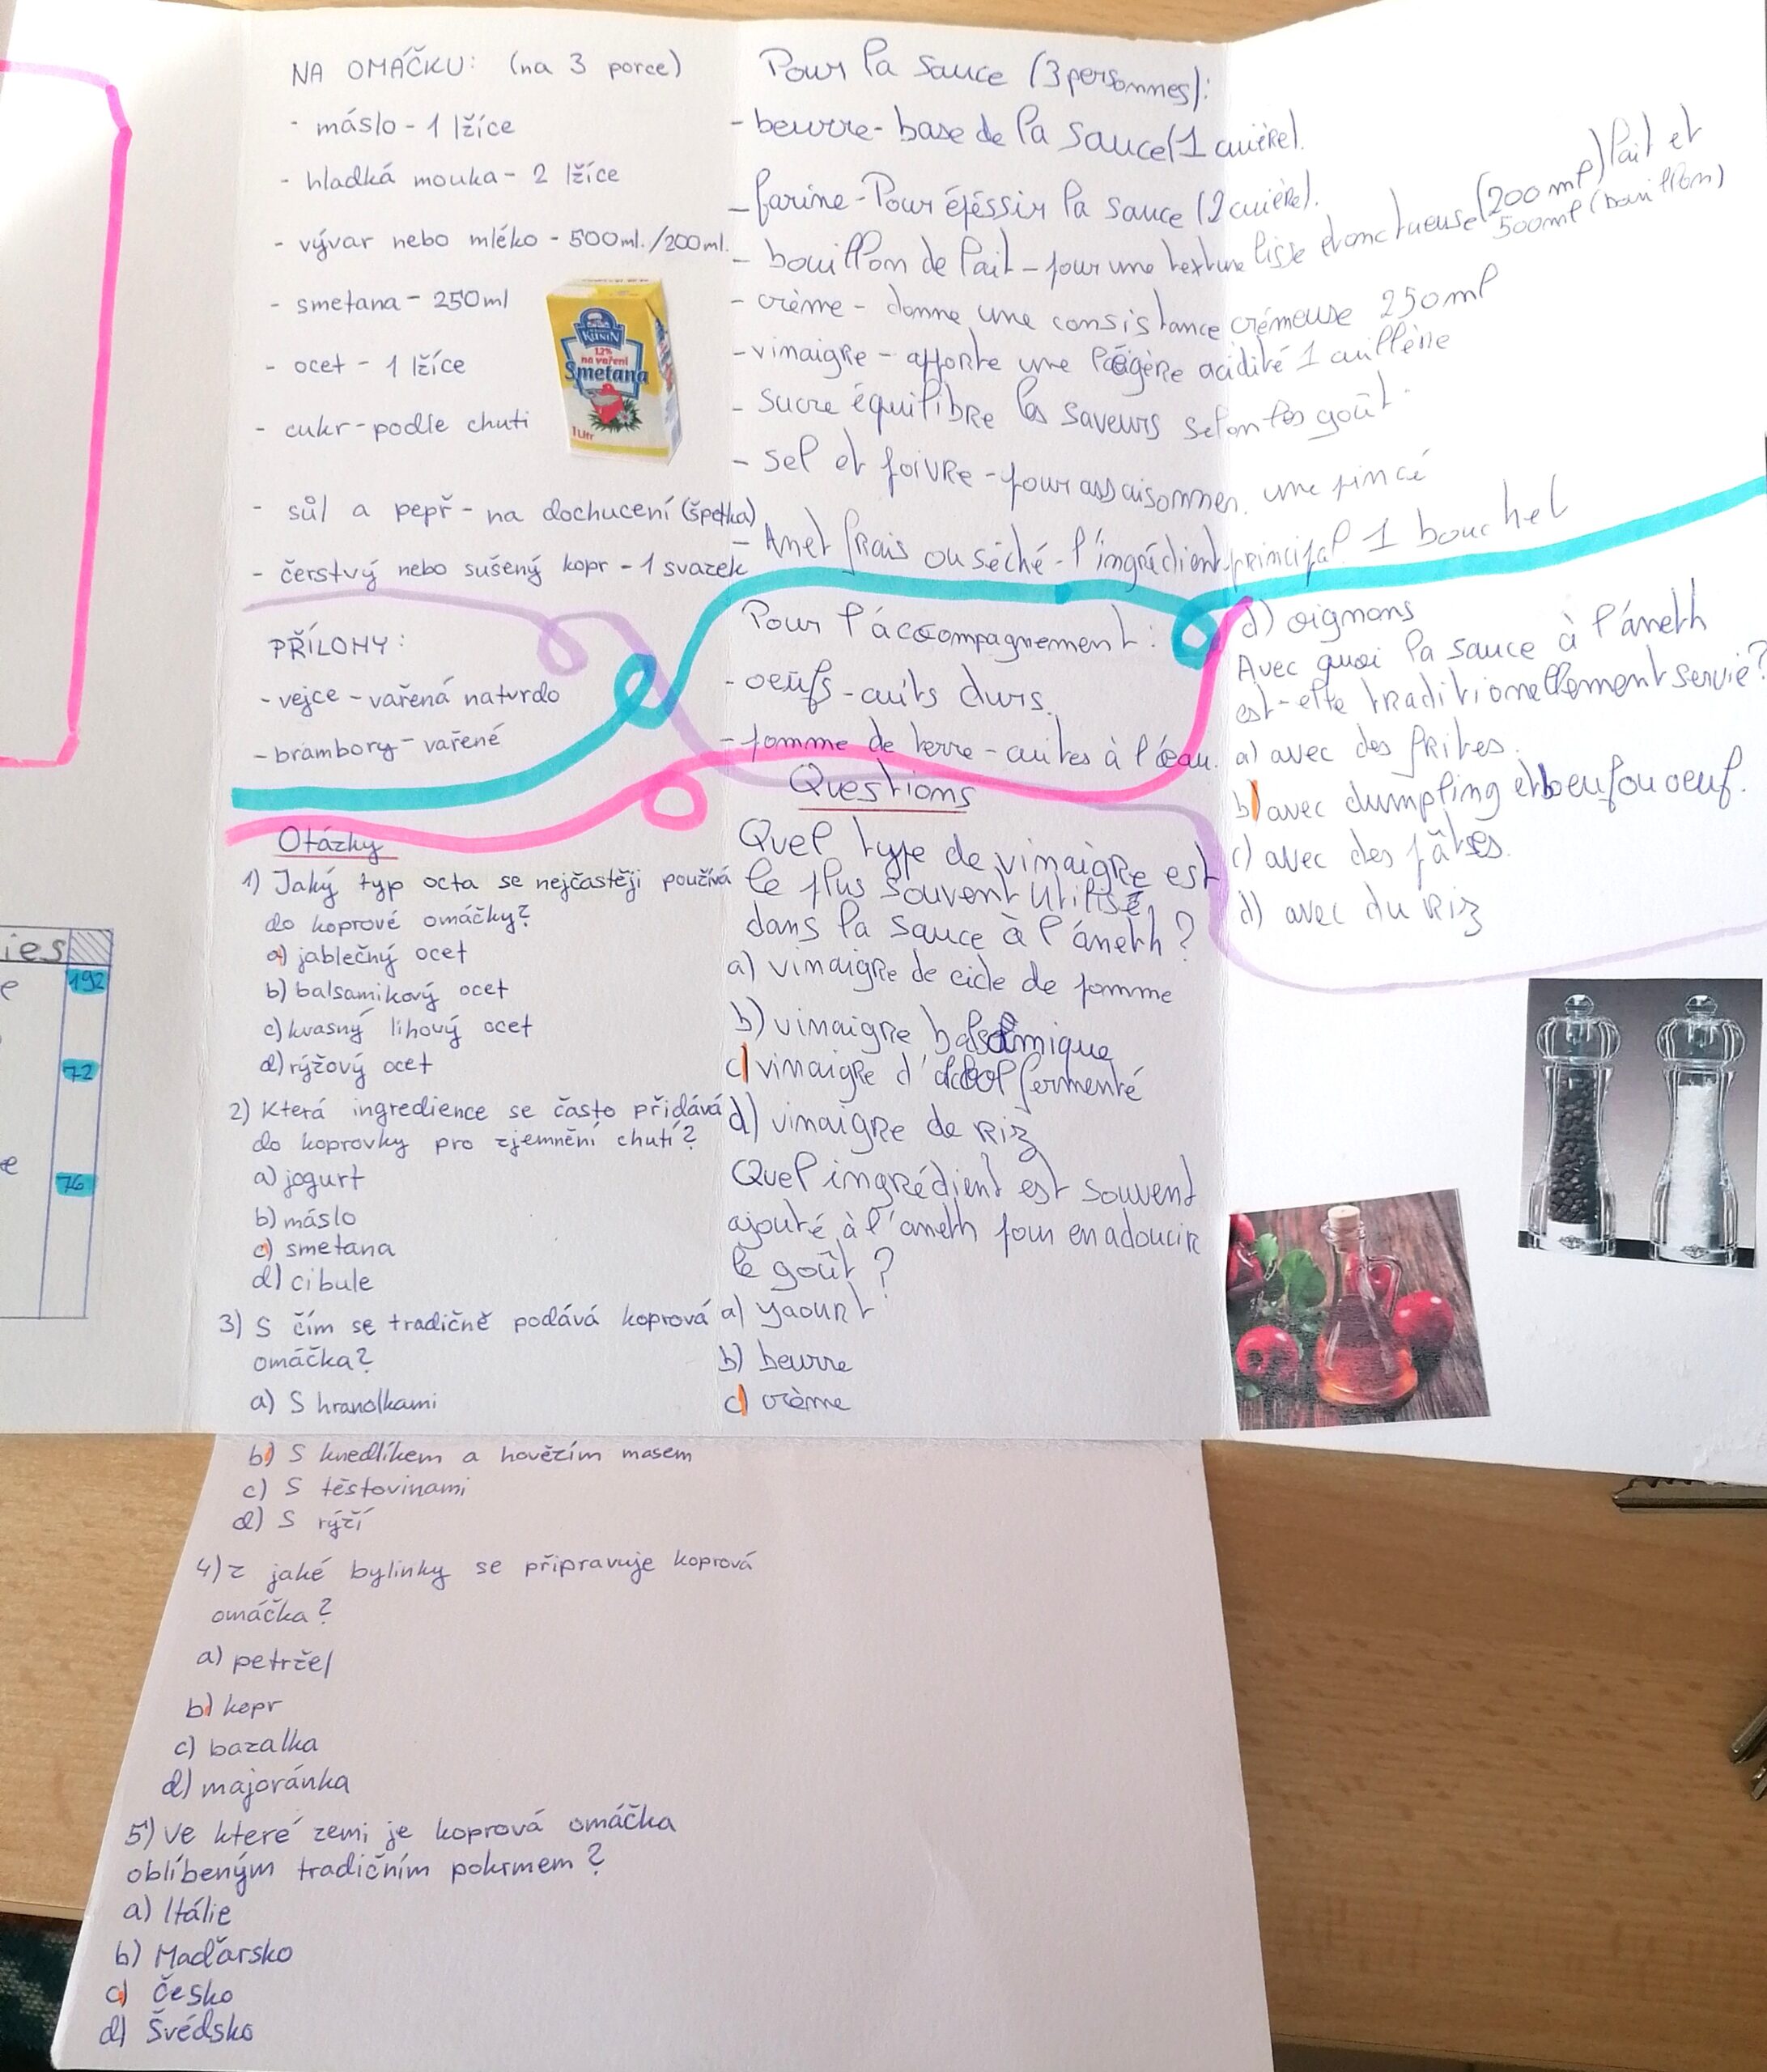 NA OMÁČKU: (na 3 porce)
- máslo - 1 lžíce
- hladká mouka - 2 lžíce
- vývar nebo mléko - 500ml./200ml.
- smetana - 250ml
- ocet - 1 lžíce
- cukr - podle chuti
- sůl a pepř - na dochucení (špetka)
- čerstvý nebo sušený kopr - 1 svazek
KUNÍN
12%
na vaření
Smetana
1 Litr
PŘÍLOHY:
- vejce - vařená natvrdo
- brambory - vařené
Otázky
1) Jaký typ octa se nejčastěji používá
do koprové omáčky?
a) jablečný ocet
b) balsamikový ocet
c) kvasný lihový ocet
d) rýžový ocet
2) Která ingredience se často přidává
do koprovky pro zjemnění chutí?
a) jogurt
b) máslo
c) smetana
d) cibule
3) S čím se tradičně podává koprová
omáčka?
a) S hranolkami
b) S knedlíkem a hovězím masem
c) S těstovinami
d) S rýží
4) z jaké bylinky se připravuje koprová
omáčka?
a) petržel
b) kopr
c) bazalka
d) majoránka
5) Ve které zemi je koprová omáčka
oblíbeným tradičním pokrmem?
a) Itálie
b) Maďarsko
c) Česko
d) Švédsko
Pour la sauce (3 personnes):
- beurre - base de la sauce (1 cuière).
- farine - Pour épéssir la sauce (2 cuière).
- bouillon de lait - pour une texture lisse et onctueuse (200 ml) lait et
500ml (bouillon)
- crème - donne une consistance crémeuse 250ml
- vinaigre - apporte une légère acidité 1 cuillère
- sucre équilibre les saveurs selon les goût.
- sel et poivre - pour assaisonner. une pincé
- Anet frais ou séché - l'ingrédient principal 1 bouchet
Pour l'áccompagnement:
- oeufs - cuits durs.
- pomme de terre - cuites à l'eau.
Questions
Quel type de vinaigre est
le plus souvent utilisé
dans la sauce à l'áneth?
a) vinaigre de cidle de pomme
b) vinaigre balsamique
c) vinaigre d'alcool fermenté
d) vinaigre de riz
Quel ingrédient est souvent
ajouté à l'aneth pour en adoucir
le goût?
a) yaourt
b) beurre
c) crème
d) oignons
Avec quoi la sauce à l'áneth
est-elle traditionellement servie?
a) avec des frites.
b) avec dumpling et beuf ou oeuf.
c) avec des pâtes.
d) avec du riz
ies
e
192
72
e
76